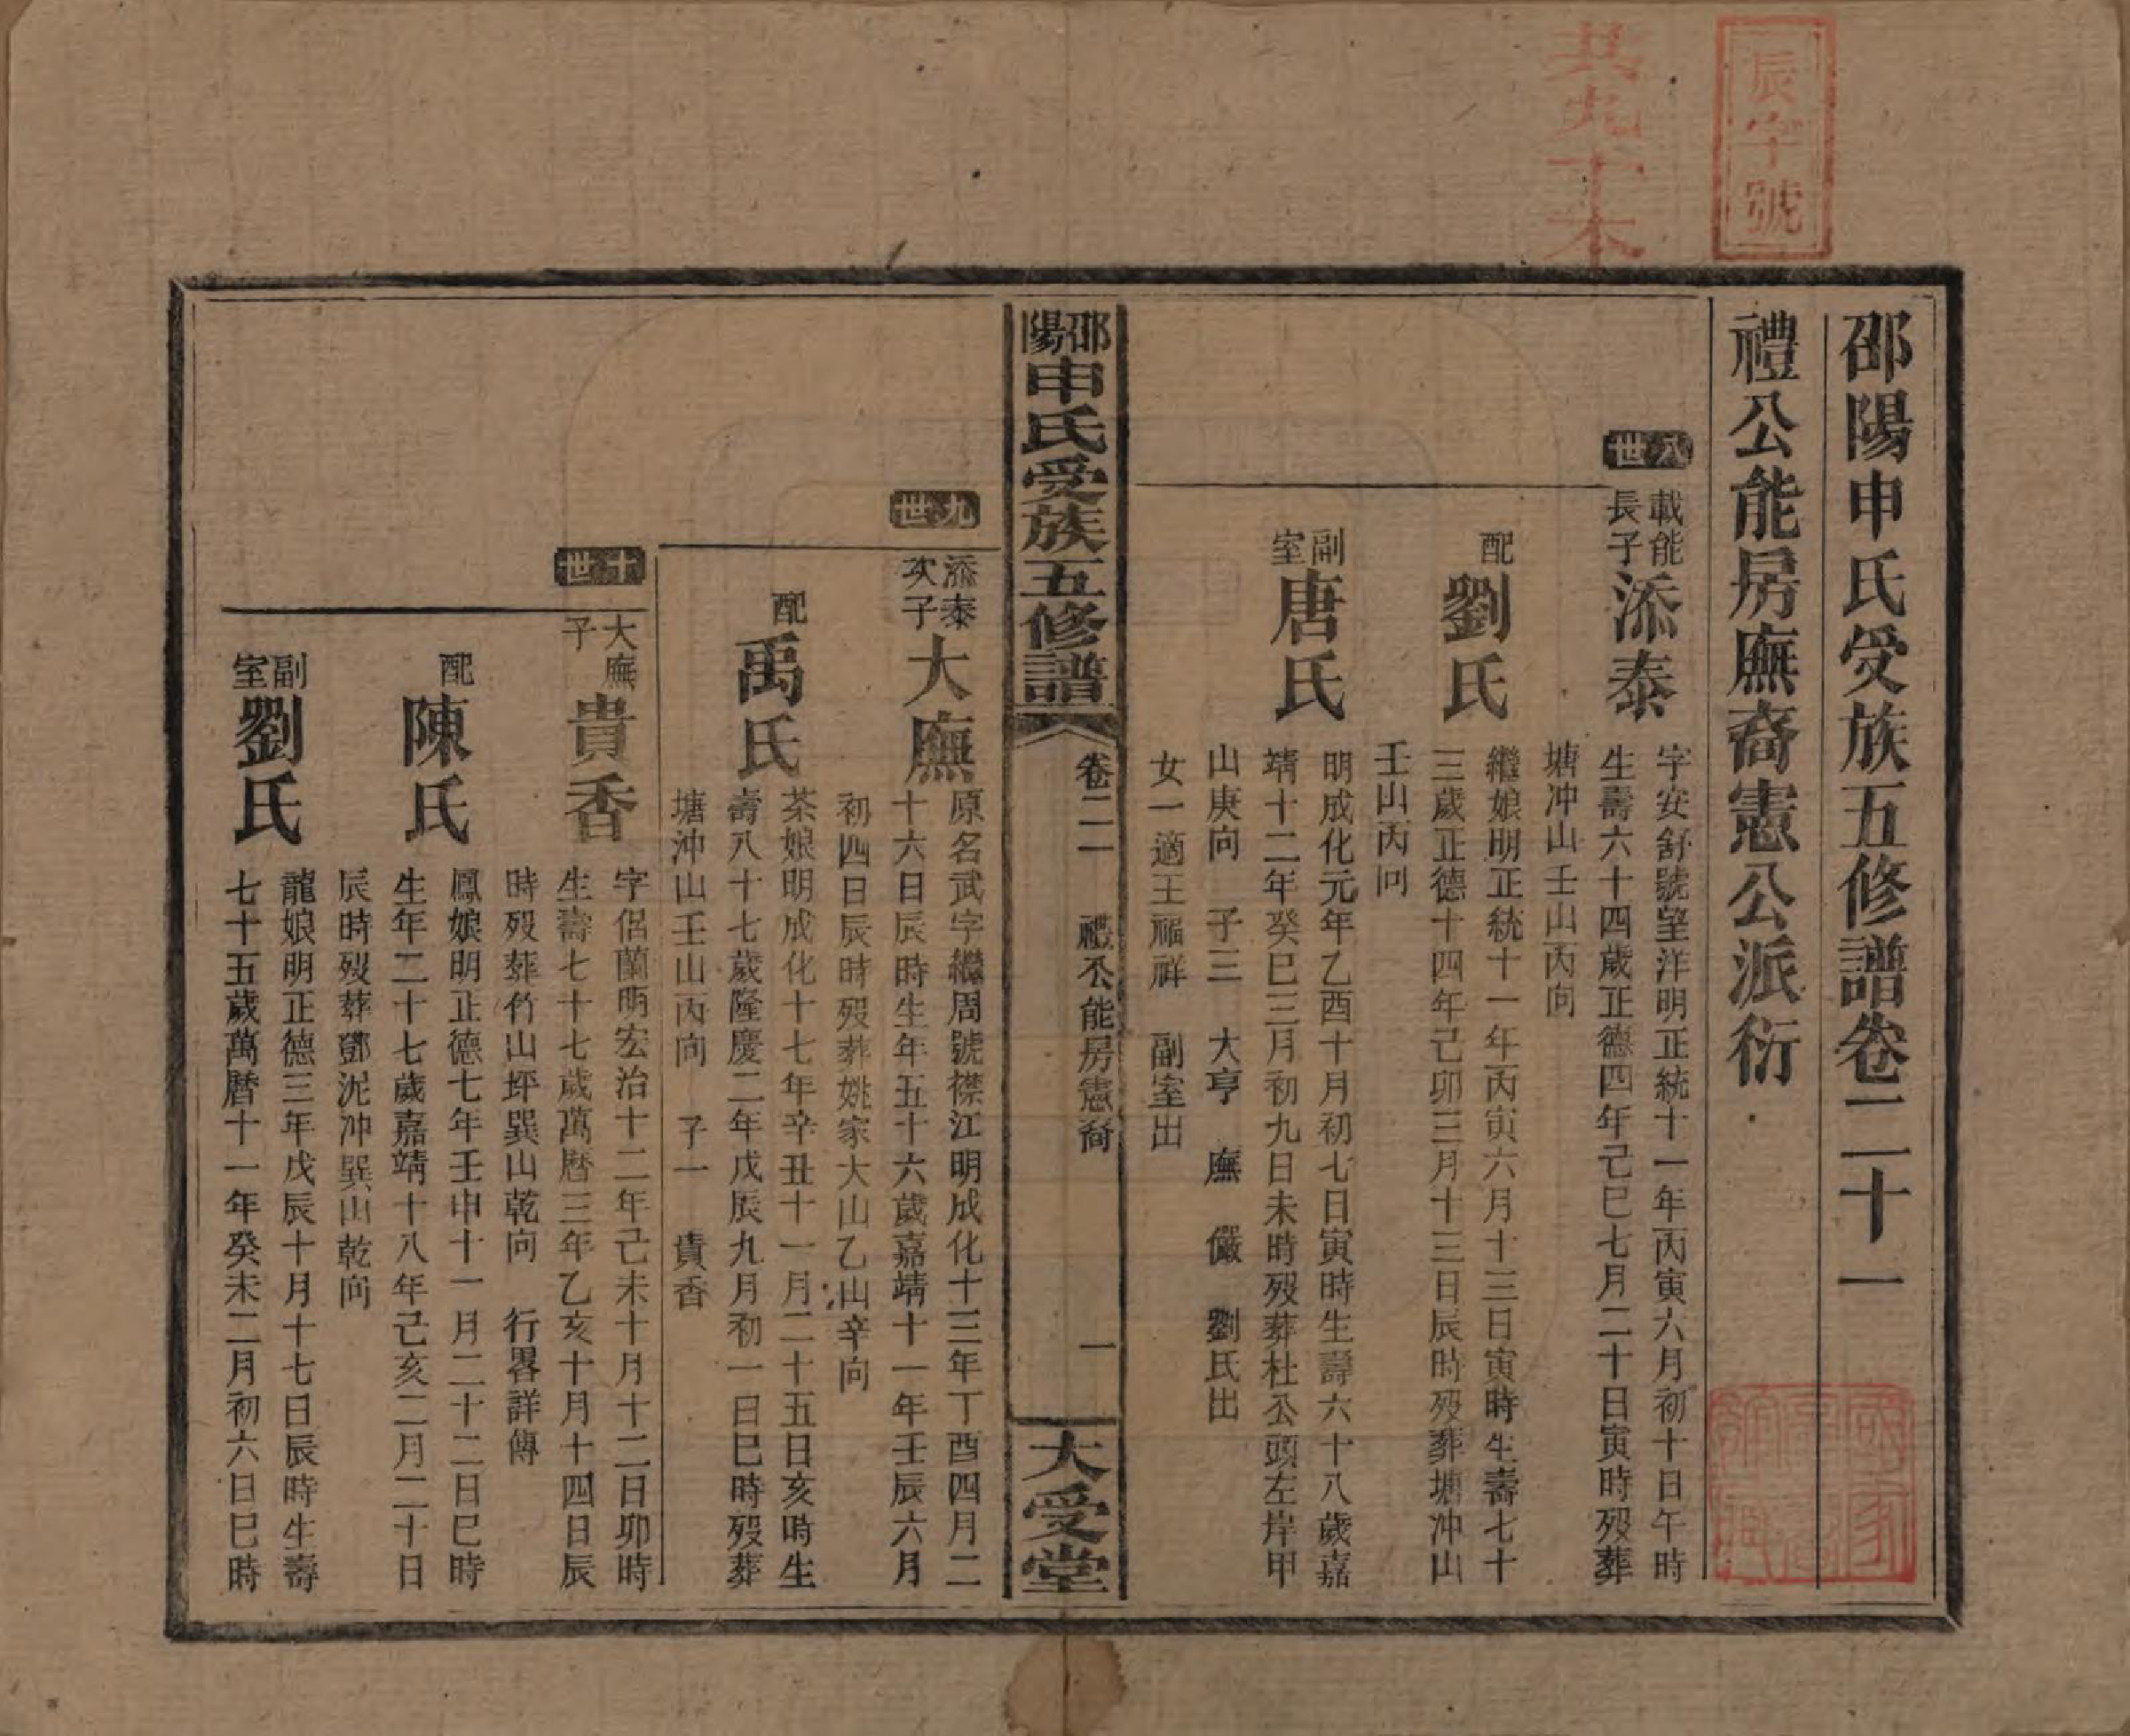 辰字號
共九十本
邵陽申氏受族五修譜卷二十一
禮公能房廡裔憲公派衍
八世
載能長子
添泰
字安舒號望洋明正統十一年丙寅六月初十日午時
生壽六十四歲正德四年己巳七月二十日寅時歿葬
塘冲山壬山丙向
配
劉氏
繼娘明正統十一年丙寅六月十三日寅時生壽七十
三歲正德十四年己卯三月十三日辰時歿葬塘冲山
壬山丙向
副室
唐氏
明成化元年乙酉十月初七日寅時生壽六十八歲嘉
靖十二年癸巳三月初九日未時歿葬杜公頭左岸甲
山庚向 子三 大亨 廡 儼 劉氏出
女一適王福祥 副室出
邵陽申氏受族五修譜
卷二一 禮公能房憲裔 一
大受堂
九世
添泰次子
大廡
原名武字繼周號襟江明成化十三年丁酉四月二
十六日辰時生年五十六歲嘉靖十一年壬辰六月
初四日辰時歿葬姚家大山乙山辛向
配
禹氏
茶娘明成化十七年辛丑十一月二十五日亥時生
壽八十七歲隆慶二年戊辰九月初一日巳時歿葬
塘沖山壬山丙向 子一 貴香
十世
大廡子
貴香
字侶蘭明宏治十二年己未十月十二日卯時
生壽七十七歲萬曆三年乙亥十月十四日辰
時歿葬竹山坪巽山乾向 行畧詳傳
配
陳氏
鳳娘明正德七年壬申十一月二十二日巳時
生年二十七歲嘉靖十八年己亥二月二十日
辰時歿葬鄧泥冲巽山乾向
副室
劉氏
龍娘明正德三年戊辰十月十七日辰時生壽
七十五歲萬曆十一年癸未二月初六日巳時